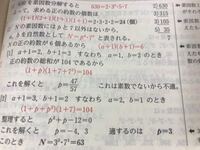 630を素因数分解すると 630=2・3²・5・7
よって，求める正の約数の個数は
(1+1)(2+1)(1+1)(1+1)=2・3・2・2=24(個)
の素因数にはpと7以外はないから，
bを自然数として N=pᵃ・7ᵇ と表される。
の正の約数が6個あるから (a+1)(b+1)=6
[1] a+1=2, b+1=3 すなわち a=1, b=2 のとき
正の約数の総和が104であるから
(1+p)(1+7+7²)=104
これを解くと p=47/57 これは素数でないから不適。
[2] a+1=3, b+1=2 すなわち a=2, b=1 のとき
(1+p+p²)(1+7)=104
整理すると p²+p-12=0
これを解くと p=-4, 3 適するものは p=3
このとき N=3²・7=63
2) 630
3) 315
3) 105
5) 35
7